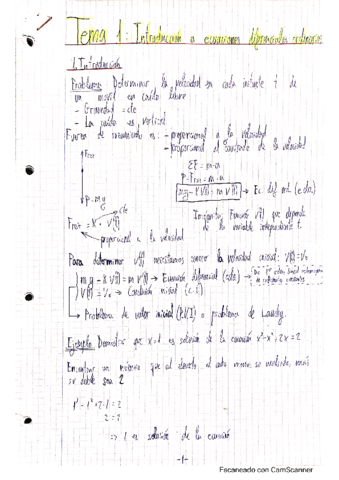 Tema 1: Introducción a ecuaciones diferenciales ordinarias
1. Introducción
Problema: Determinar la velocidad en cada instante t de
un movil en caída libre
- Gravedad = cte
- La caída es vertical
Fuerza de rozamiento es: - proporcional a la velocidad
- proporcional al cuadrado de la velocidad
Froz
ΣF = m·a
P - Froz = m·a
mg - K V(t) = m V'(t) → Ec. dif. ord. (e.d.o.)
P = m·g
cte
Froz = K · V(t)
Incógnita: Función v(t) que depende
de la variable independiente t.
proporcional a la velocidad
Para determinar V(t) necesitamos conocer la velocidad inicial: V(0) = V₀
m·g - K V(t) = m V'(t) → Ecuación diferencial (edo)
V(0) = V₀ → Condición inicial (c.i.)
→ Problema de valor inicial (P.V.I) o problema de Cauchy.
Ejemplo: Demostrar que x=1 es solución de la ecuación x³-x²+2x=2
Encontrar un número que al elevarlo al cubo menos su cuadrado, más
su doble sea 2
1³-1²+2·1=2
2=2
⇒ 1 es solución de la ecuación
-1-
Escaneado con CamScanner